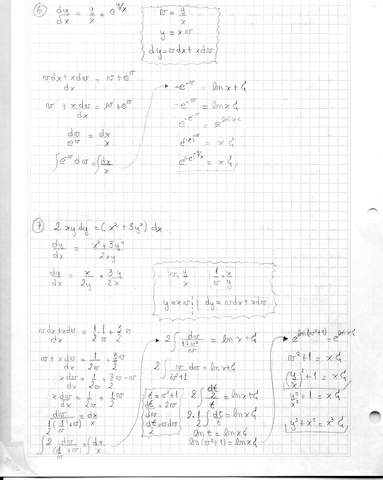 6) dy/dx = y/x + e^(y/x)
v = y/x
y = xv
dy = vdx + xdv
vdx + xdv / dx = v + e^v
v + xdv/dx = v + e^v
dv/e^v = dx/x
∫e^-v dv = ∫dx/x
-e^-v = ln x + C
-e^-v = ln x C
e^-e^-v = e^ln xC
e^-e^-v = x C
e^-e^-y/x = x C
7) 2xy dy = (x² + 3y²) dx
dy/dx = x² + 3y² / 2xy
dy/dx = x/2y + 3y/2x
v = y/x 1/v = x/y
y = xv dy = vdx + xdv
vdx + xdv / dx = 1/2 · 1/v + 3/2 v
v + xdv/dx = 1/2v + 3/2 v
xdv/dx = 1/2v + 3/2 v - v
xdv/dx = 1/2v + 1/2 v
dv / 1/2(1/v + v) = dx/x
∫ 2 dv/(1/v + v) = ∫dx/x
2∫ dv / (1+v²/v) = ln x + C
2∫ v/(v²+1) dv = ln x + C
t = v² + 1
dt/dv = 2v
dt/2 = vdv
2∫ (dt/2)/t = ln x + C
2·1/2 ∫ dt/t = ln x C
ln t = ln x C
ln(v²+1) = ln x C
e^ln(v²+1) = e^ln xC
v² + 1 = x C
(y/x)² + 1 = x C
y²/x² + 1 = x C
y² + x² = x³ C